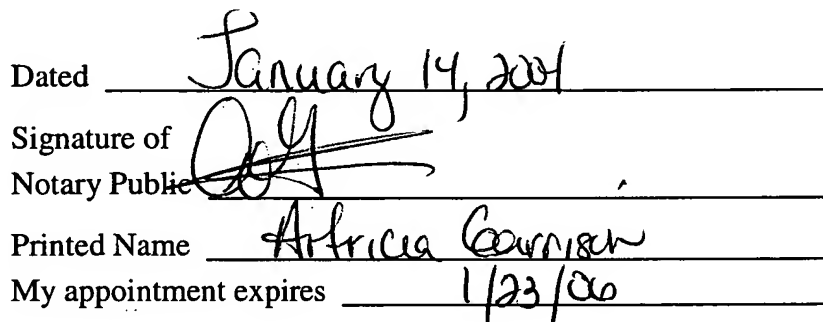 Dated January 14, 2004
Signature of
Notary Public
Printed Name Artricia Garrison
My appointment expires 1/23/06